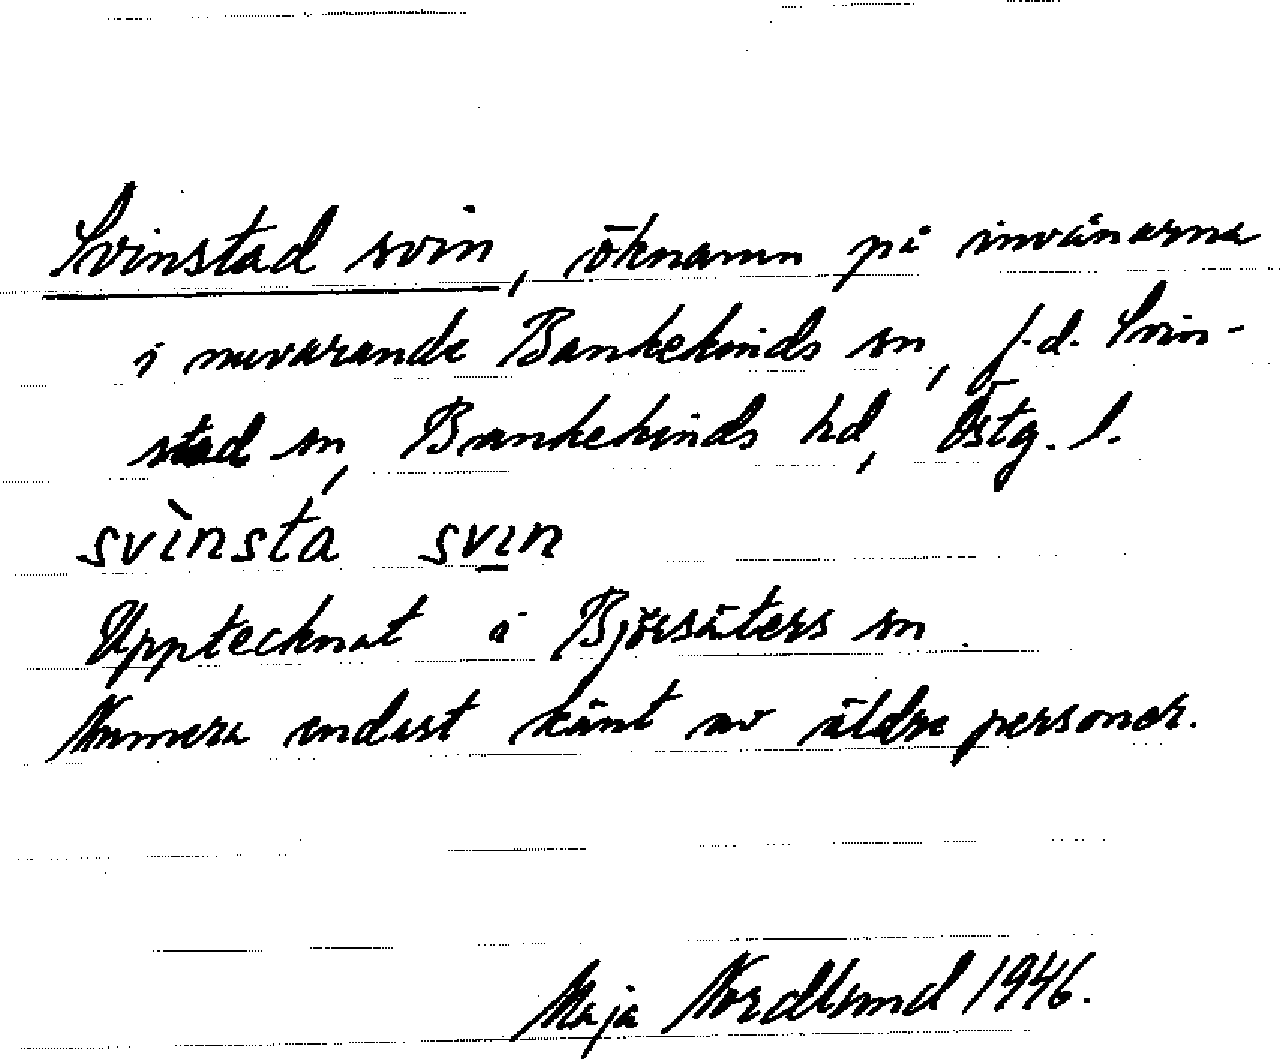 Svinstad svin, öknamn på invånarna
i nuvarande Bankekinds sn, f.d. Svin-
stad sn, Bankekinds hd, Östg. l.
svìnsta svi̲n
Upptecknat i Björsäters sn.
Numera endast känt av äldre personer.
Maja Nordlund 1946.